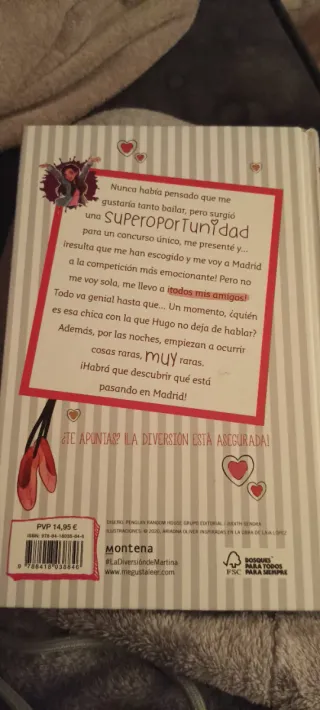 Nunca había pensado que me
gustaría tanto bailar, pero surgió
una superoportunidad
para un concurso único, me presenté y...
¡resulta que me han escogido y me voy a Madrid
a la competición más emocionante! Pero no
me voy sola, me llevo a ¡todos mis amigos!
Todo va genial hasta que... Un momento, ¿quién
es esa chica con la que Hugo no deja de hablar?
Además, por las noches, empiezan a ocurrir
cosas raras, muy raras.
¡Habrá que descubrir qué está
pasando en Madrid!
¿TE APUNTAS? ¡LA DIVERSIÓN ESTÁ ASEGURADA!
PVP 14,95 €
montena
#LaDiversióndeMartina
www.megustaleer.com
FSC
BOSQUES
PARA TODOS
PARA SIEMPRE